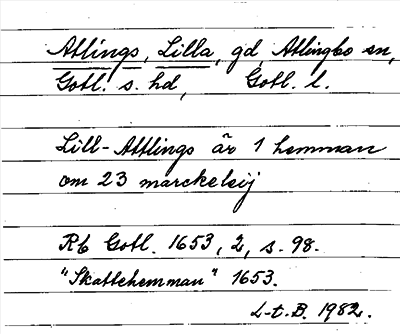 Atlings, Lilla, gd, Atlingbo sn,
Gotl. s. hd, Gotl. l.
Lill-Attlings är 1 hemman
om 23 marckeleij
Rb Gotl. 1653, 2, s. 98.
"Skattehemman" 1653.
L-t. B. 1982.